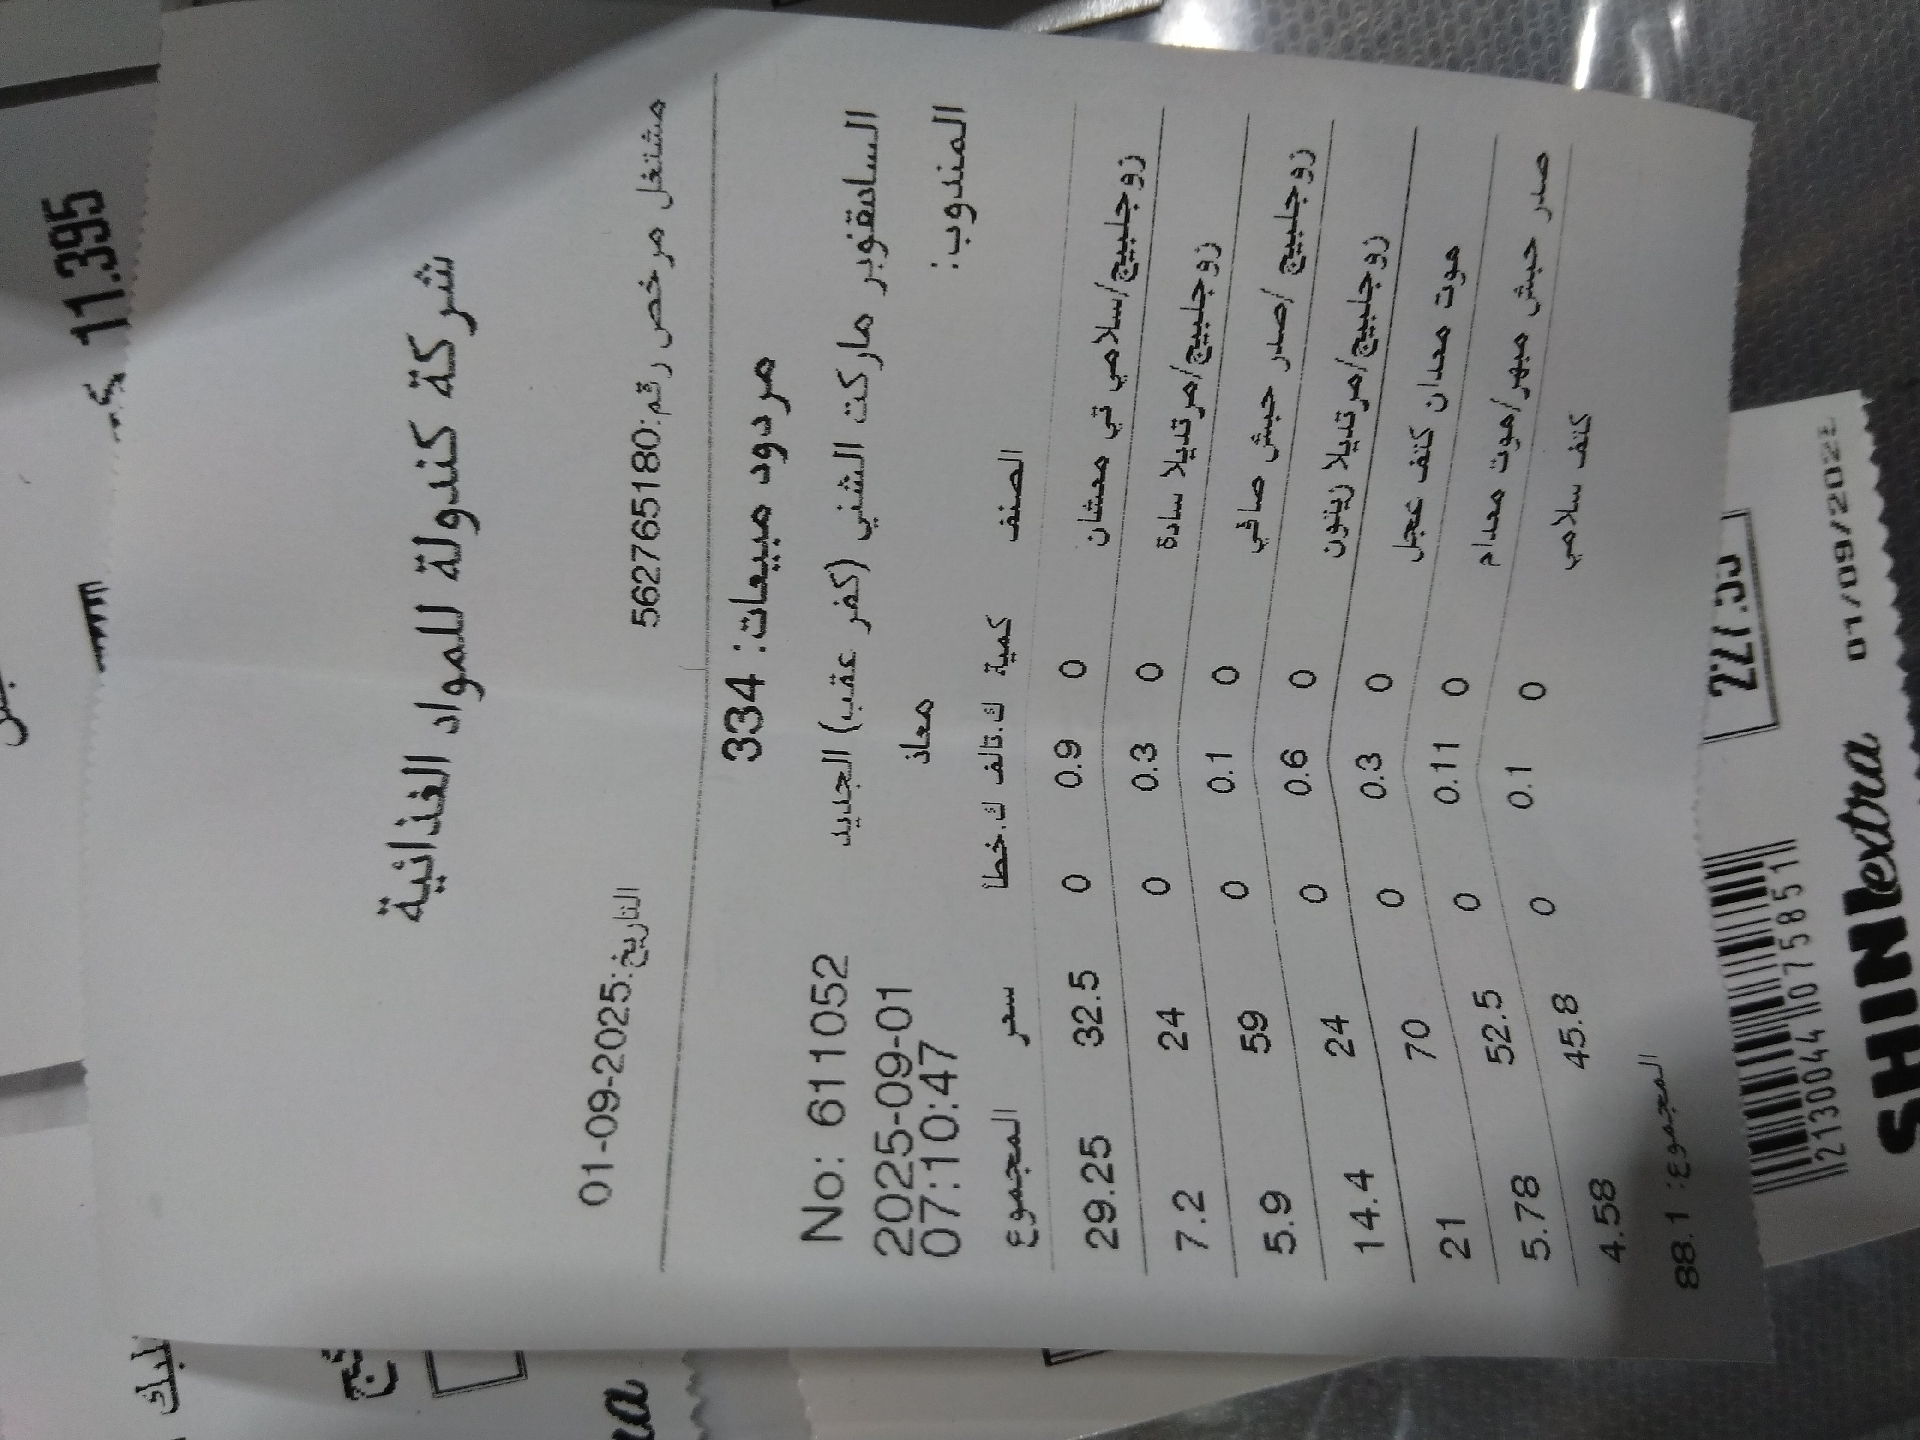 شركة كندولة للمواد الغذائية
مشتغل مرخص رقم:562765180 التاريخ:01-09-2025
مردود مبيعات: 334
السادة:نوبر ماركت الشني (كفر عقب) الجديد No: 611052
2025-09-01
المندوب: معاذ 07:10:47
الصنف كمية ك.تالف ك.خطأ سعر المجموع
زوجلبيج/سلامي تي معشان 0 0.9 0 32.5 29.25
زوجلبيج/مرتديلا سادة 0 0.3 0 24 7.2
زوجلبيج /صدر حبش صافي 0 0.1 0 59 5.9
زوجلبيج/مرتديلا زيتون 0 0.6 0 24 14.4
موت معدان كتف عجل 0 0.3 0 70 21
صدر حبش مبهر/موت معدام 0 0.11 0 52.5 5.78
كتف سلامي 0 0.1 0 45.8 4.58
المجموع: 88.1
11.395
227.55
2130044075851
01/09/202
SHINextra